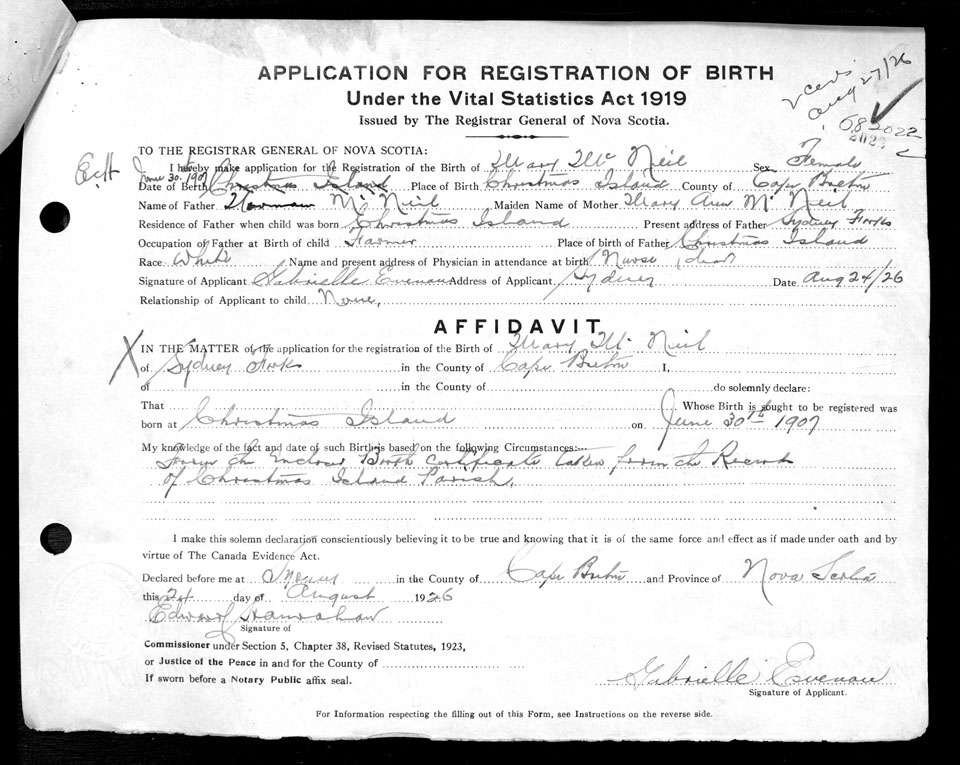 APPLICATION FOR REGISTRATION OF BIRTH
Under the Vital Statistics Act 1919
Issued by The Registrar General of Nova Scotia.
Aug 27/26
682022
2022
TO THE REGISTRAR GENERAL OF NOVA SCOTIA:
I hereby make application for the Registration of the Birth of Mary Mc Neil Sex Female
June 30th 1907
Date of Berth Christmas Island Place of Birth Christmas Island County of Cape Breton
Name of Father Norman Mc Neil Maiden Name of Mother Mary Ann Mc Neil
Residence of Father when child was born Christmas Island Present address of Father Sydney Forks
Occupation of Father at Birth of child Farmer Place of birth of Father Christmas Island
Race White Name and present address of Physician in attendance at birth Nurse dead
Signature of Applicant Gabrielle Address of Applicant Sydney Date Aug 24/26
Relationship of Applicant to child None,
AFFIDAVIT
X IN THE MATTER of the application for the registration of the Birth of Mary Mc Neil
of Sydney Forks in the County of Cape Breton I,
of in the County of do solemnly declare:
That Whose Birth is sought to be registered was
born at Christmas Island on June 30th 1907
My knowledge of the fact and date of such Birth is based on the following Circumstances:
From the Enclosed Birth Certificate taken from the Records
of Christmas Island Parish.
I make this solemn declaration conscientiously believing it to be true and knowing that it is of the same force and effect as if made under oath and by
virtue of The Canada Evidence Act.
Declared before me at Sydney in the County of Cape Breton and Province of Nova Scotia
this 24 day of August 1926
Edward
Signature of
Commissioner under Section 5, Chapter 38, Revised Statutes, 1923,
or Justice of the Peace in and for the County of
If sworn before a Notary Public affix seal.
Gabrielle
Signature of Applicant.
For Information respecting the filling out of this Form, see Instructions on the reverse side.